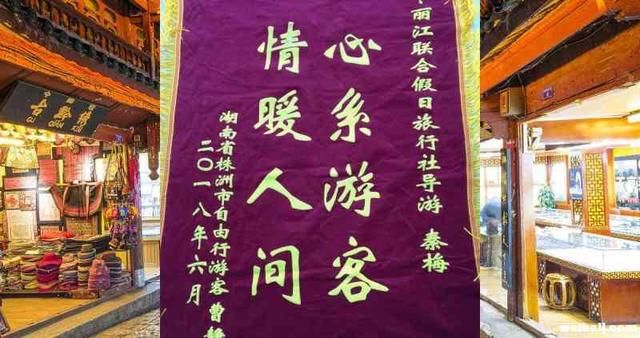 丽江联合假日旅行社导游 秦梅
心系游客
情暖人间
湖南省株洲市自由行游客 曹
二〇一八年六月